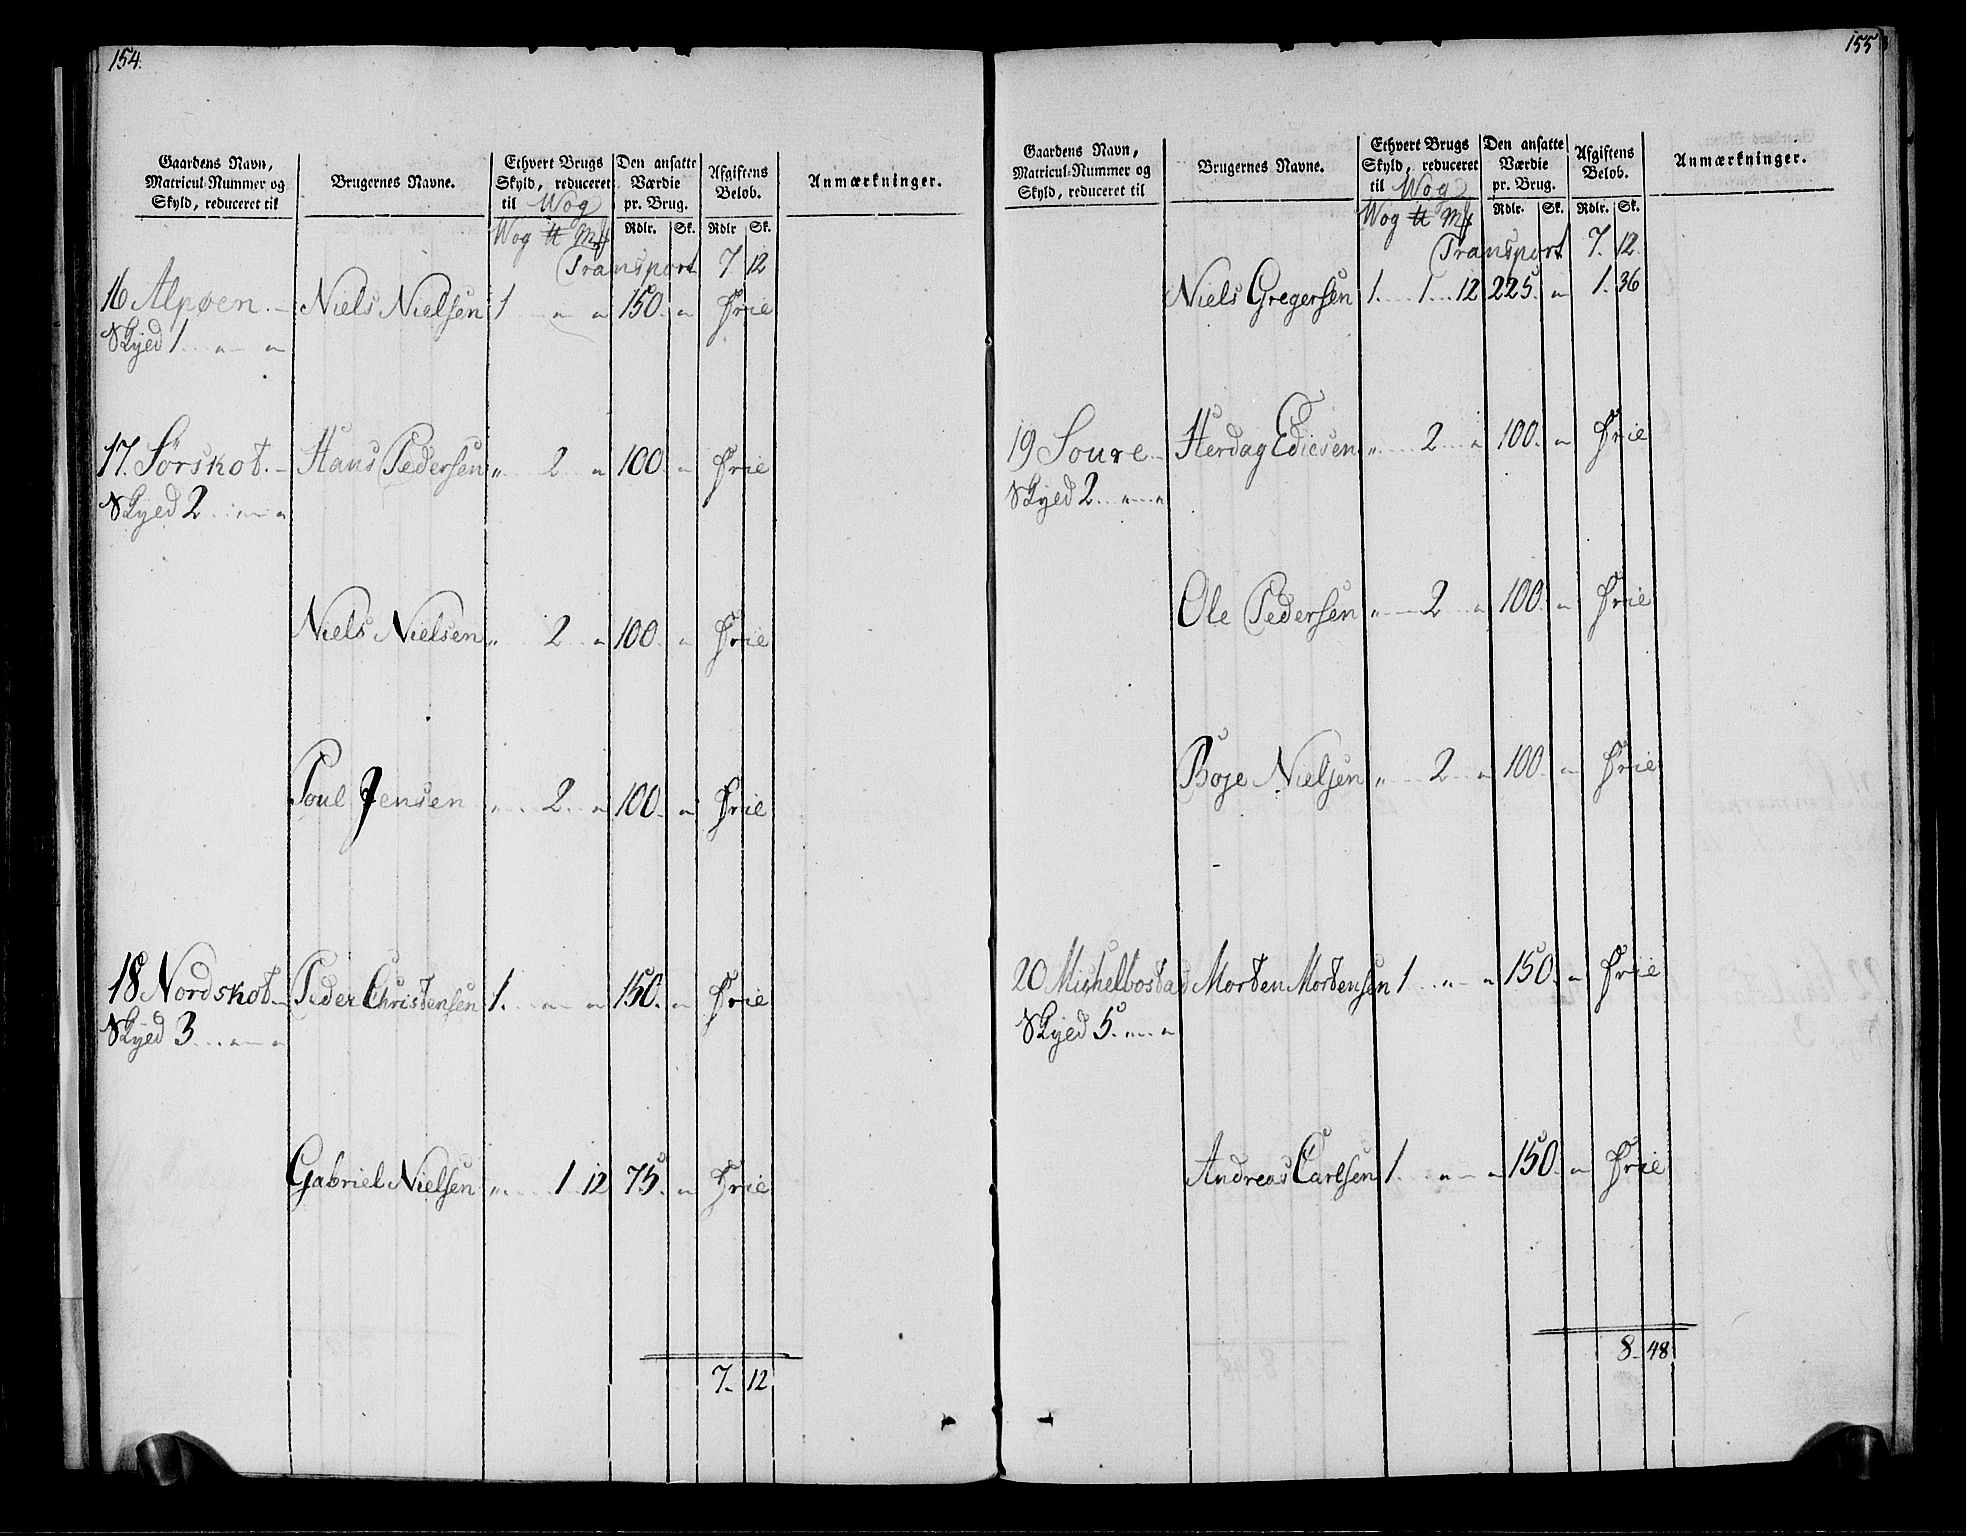 154.
Gaardens Navn, Matricul-Nummer og Skyld, reduceret til | Brugernes Navne. | Ethvert Brugs Skyld, reduceret til Wog | Den ansatte Værdie pr. Brug. | Afgiftens Beløb. | Anmærkninger.
Wog ℔ Mk | Rdlr. Sk. | Rdlr Sk.
Transport 7. 12
16 Alpøen. Niels Nielsen 1 „ „ 150. „ Frie
Skyed 1 „ „
17. Sørskot. Hans Pedersen „ 2 „ 100. „ Frie
Skyed 2 „ „
Niels Nielsen „ 2 „ 100. „ Frie
Poul Jensen „ 2 „ 100. „ Frie
18 Nordskot Peder Christensen 1. „ „ 150. „ Frie
Skyed 3 „ „
Gabriel Nielsen „ 1 12 75. „ Frie
7. 12
155
Gaardens Navn, Matricul-Nummer og Skyld, reduceret til | Brugernes Navne. | Ethvert Brugs Skyld, reduceret til Wog | Den ansatte Værdie pr. Brug. | Afgiftens Beløb. | Anmærkninger.
Wog ℔ Mk | Rdlr. Sk. | Rdlr. Sk.
Transport 7. 12.
Niels Gregersen 1. 1 12 225. „ 1. 36
19 Soure Herdag Ediesen „ 2 „ 100. „ Frie
Skyed 2 „ „
Ole Pedersen „ 2 „ 100. „ Frie
Boje Nielsen „ 2 „ 100. „ Frie
20 Mishelbostad Morten Mortensen 1 „ „ 150. „ Frie
Skyed 5. „ „
Andreas Carlsen 1. „ „ 150. „ Frie
8. 48